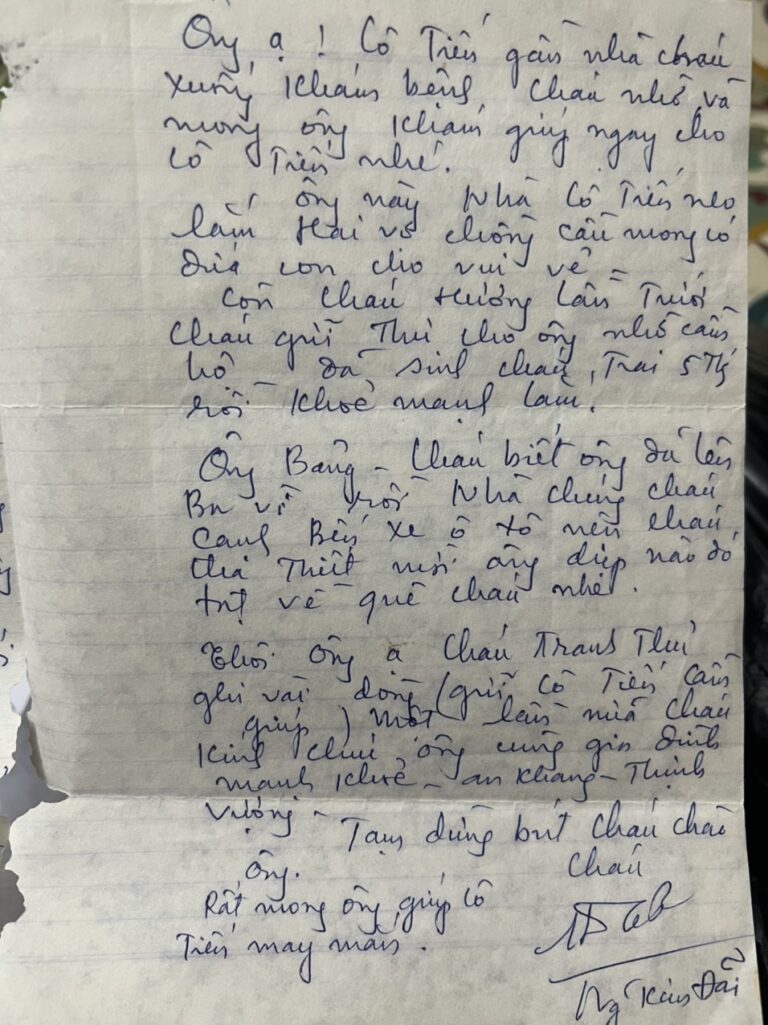 Ông ạ! Cô Tiến gần nhà cháu
xuống khám bệnh, Cháu nhờ và
mong ông khám giúp ngay cho
cô Tiến nhé.
Ông này Nhà Cô Tiến neo
lắm Hai vợ chồng cầu mong có
đứa con cho vui vẻ –
Còn cháu Hường lần trước
cháu gửi thư cho ông nhờ cầm
hộ – đã sinh cháu Trai 5 Tg
rồi khoẻ mạnh lắm.
Ông Bảng – Cháu biết ông đã lên
về rồi Nhà chúng cháu
cạnh Bến xe ô tô nên cháu
tha thiết mời ông dịp nào đó
về quê cháu nhé.
Thôi ông ạ Cháu Tranh Thủ
ghi vài dòng (gửi cô Tiến cầm
giúp) Một lần nữa cháu
kính chúc ông cùng gia đình
mạnh khoẻ – an khang – Thịnh
Vượng – Tạm dừng bút Cháu chào
ông. Cháu
Rất mong ông giúp cô
Tiến may mắn.